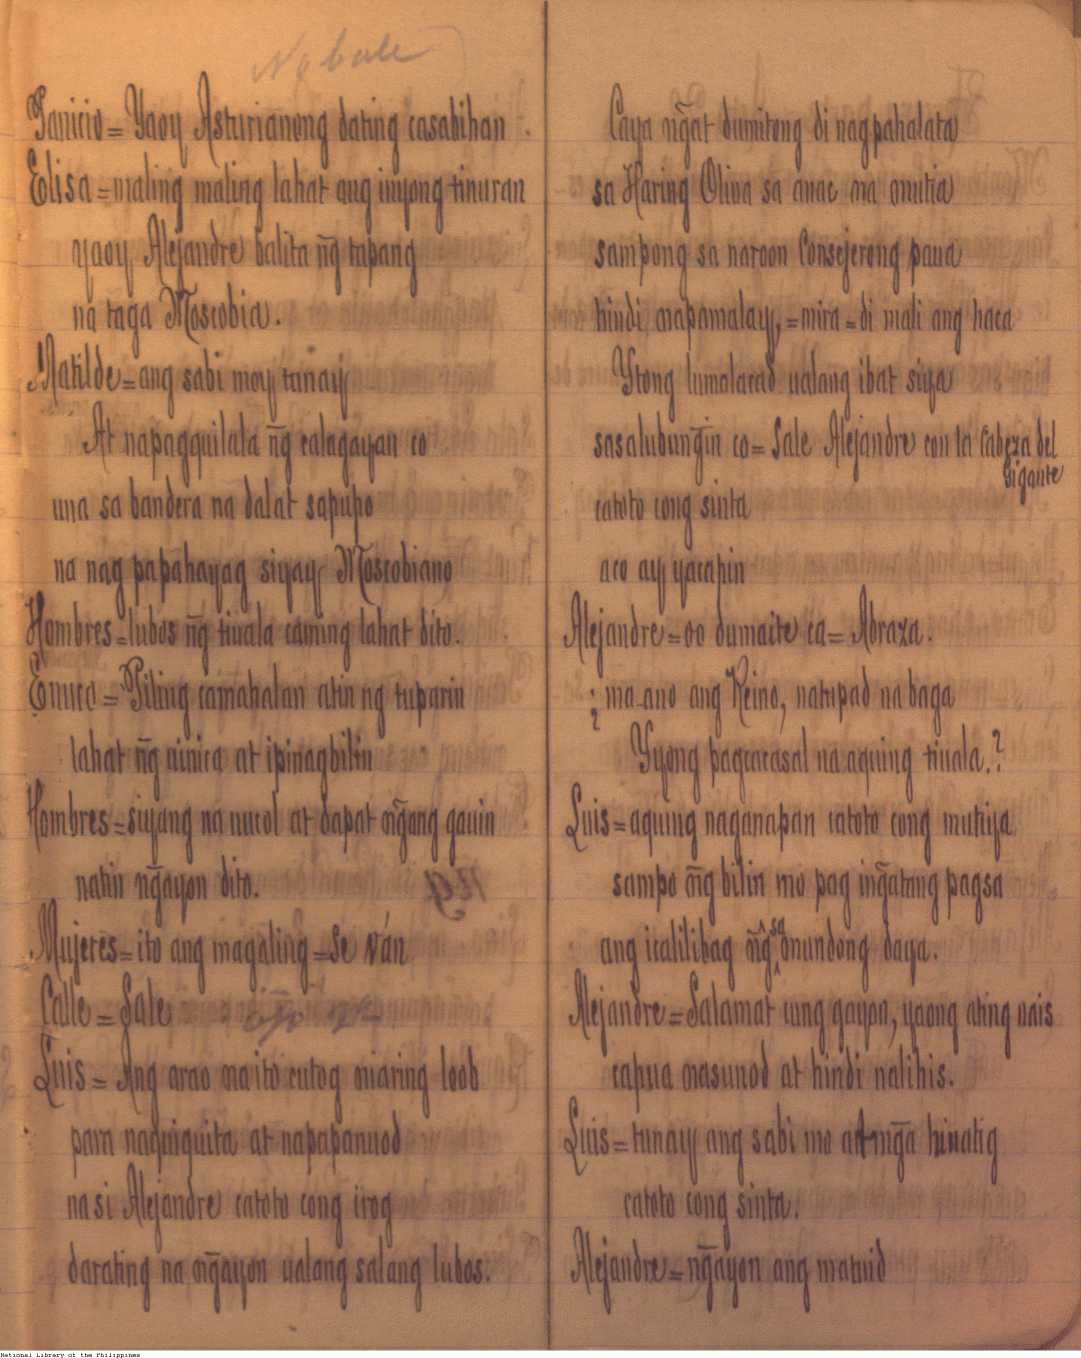 No bale
Janicio = Yaoy Asturianong dating casabihan.
Elisa = maling maling lahat ang inyong tinuran
yaoy Alejandre balita ñg tapang
na taga Moscobia.
Matilde = ang sabi moy tunay
At napagquilala ñg calagayan co
una sa bandera na dalat sapupo
na nag papahayag siyay Moscobiano
Hombres = lubos ñg tiuala caming lahat dito.
Enrico = Piling camahalan atin ng tuparin
lahat ñg uinica at ipinagbilin
Hombres = siyang na nucol at dapat mg̃ang gauin
natin ng̃ayon dito.
Mujeres = ito ang magaling = Se ván
Calle = Sale
Luis = Ang arao na ito cutog niaring loob
para naquiquita at napapanuod
na si Alejandre catoto cong irog
darating na ng̃ayon ualang salang lubos.
Caya ng̃at dumitong di nagpahalata
sa Haring Oliva sa anac na mutia
sampong sa naroon Consejerong paua
hindi napamalay, = mira = di mali ang haca
Ytong lumalacad ualang ibat siya
sasalubung̃in co = Sale Alejandre con la Cabeza del
Gigante
catoto cong sinta
aco ay yacapin
Alejandre = oo dumaite ca = Abraza.
¿ ma-ano ang Reino, natupad na baga
Yyong pagcacasal na aquing tiuala.?
Luis = aquing naganapan catoto cong mutiya
sampo ñg bilin mo pag ing̃atang pagsa
ang icalilibag ñg sa mundong daya.
Alejandre = Salamat cung gayon, yaong ating nais
capua nasunod at hindi nalihis.
Luis = tunay ang sabi mo at mg̃a hinatig
catoto cong sinta.
Alejandre = ng̃ayon ang matuid
National Library of the Philippines